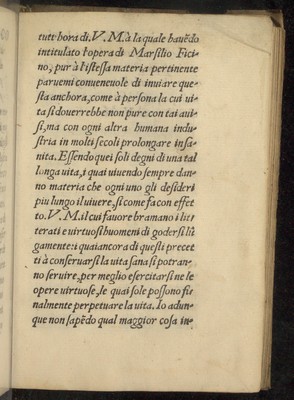 tutt'hora di. V. M. à la quale hauēdo
intitulato l'opera di Marsilio Fici
no, pur à l'istessa materia pertinente
paruemi conueneuole di inuiare que-
sta anchora, come à persona la cui ui-
ta si douerrebbe non pure con tai aui-
si, ma con ogni altra humana indu-
stria in molti secoli prolongare in sa-
nita. Essendo quei soli degni di una tal
lunga uita, i quai uiuendo sempre dan-
no materia che ogni uno gli desideri
piu lungo il uiuere, si come fa con effet
to. V. M. il cui fauore bramano i lit
terati e uirtuosi huomeni di godersi lū
gamente: i quai ancora di questi precet
ti à conseruarsi la uita sana si potran-
no seruire, per meglio esercitarsi ne le
opere uirtuose, le quai sole possono fi-
nalmente perpetuare la uita. Io adun-
que non sapēdo qual maggior cosa in-